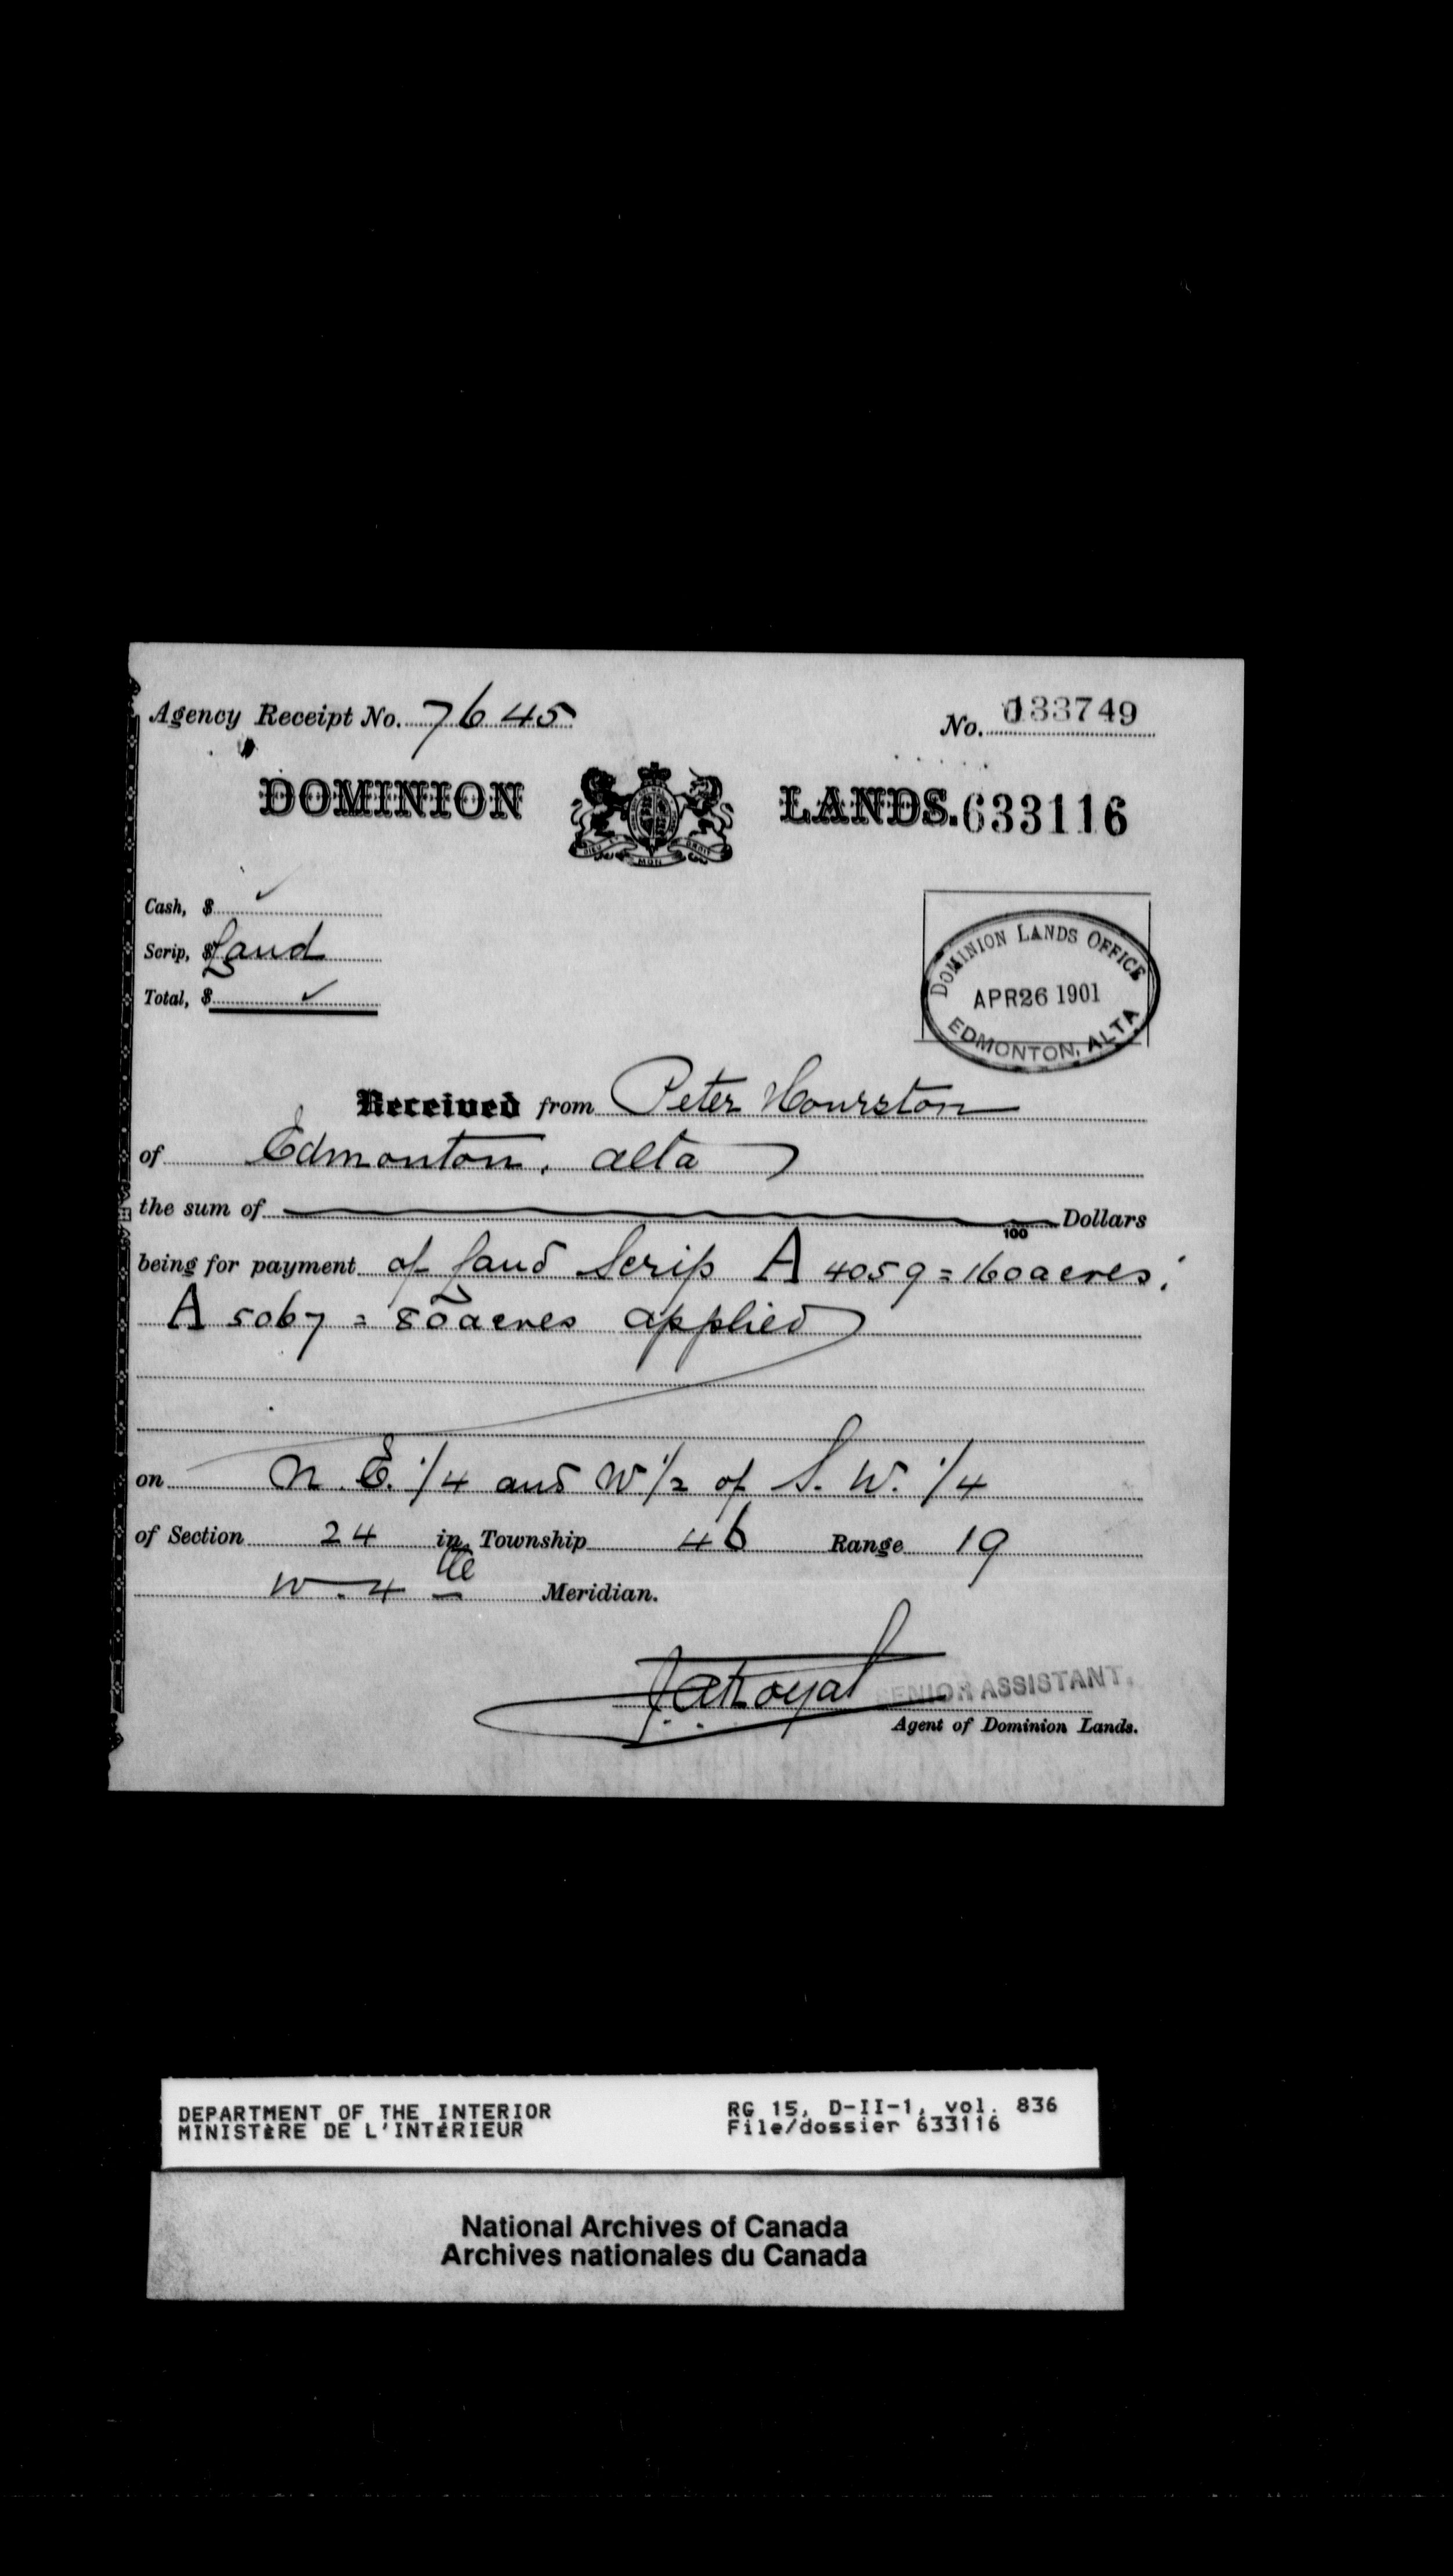 Agency Receipt No. 7645
No. 133749
DOMINION LANDS. 633116
DIEU ET MON DROIT
Cash, $
Scrip, $ Land
Total, $
DOMINION LANDS OFFICE
APR 26 1901
EDMONTON, ALTA
Received from Peter Hourston
of Edmonton, Alta
the sum of 100 Dollars
being for payment of Land Scrip A 4059 = 160 acres;
A 5067 = 80 acres applied
on N. E. 1/4 and W 1/2 of S. W. 1/4
of Section 24 in Township 46 Range 19
W. 4th Meridian.
J. A. Royal SENIOR ASSISTANT.
Agent of Dominion Lands.
DEPARTMENT OF THE INTERIOR
MINISTÈRE DE L'INTÉRIEUR
RG 15, D-II-1, vol. 836
File/dossier 633116
National Archives of Canada
Archives nationales du Canada